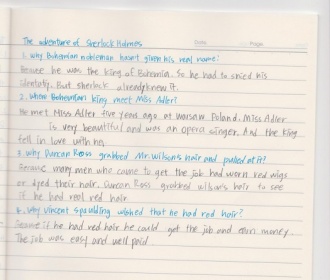 The adventure of Sherlock Holmes
Date Page
1. why Bohemian nobleman hasn't given his real name?
Because he was the king of Bohemia. So he had to
identity. But sherlock already knew it.
2. where Bohemian king meet Miss Adler?
He met Miss Adler five years ago at warsaw Poland. Miss Adler
is very beautiful and was an opera singer. And the king
fell in love with her
3. why Duncan Ross grabbed Mr. wilson's hair and pulled at it?
Because many men who came to get the job had worn red wigs
or dyed their hair. Duncan Ross grabbed wilson's hair to see
if he had real red hair
4. why Vincent Spaulding wished that he had red hair?
Because if he had red hair he could get the job and earn money.
The job was easy and well paid.